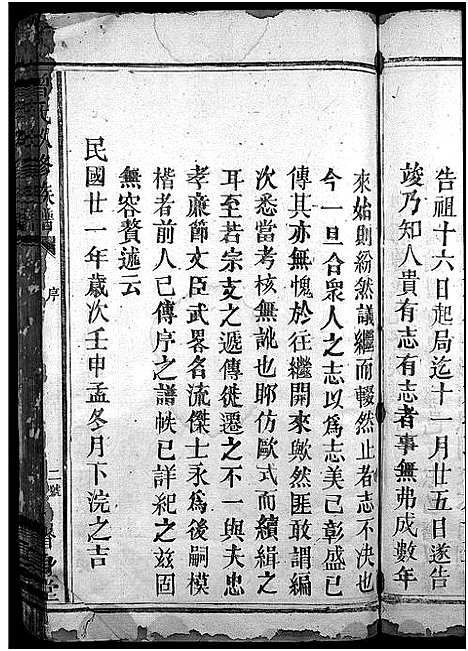 告祖十六日起局迄十一月廿五日遂告
竣乃知人貴有志有志者事無弗成數年
來始則紛然議繼而輟然止者志不决也
今一旦合衆人之志以爲志美已彰盛已
傳其亦無愧於往繼開來歟然匪敢謂編
次悉當考核無訛也郰仿歐式而續緝之
耳至若宗支之遞傳徙遷之不一與夫忠
孝亷節文臣武畧名流傑士永爲後嗣模
楷者前人已傳序之譜帙已詳紀之茲固
無容贅述云
民國廿一年歲次壬申孟冬月下浣之吉
氏四修族譜
序
二號